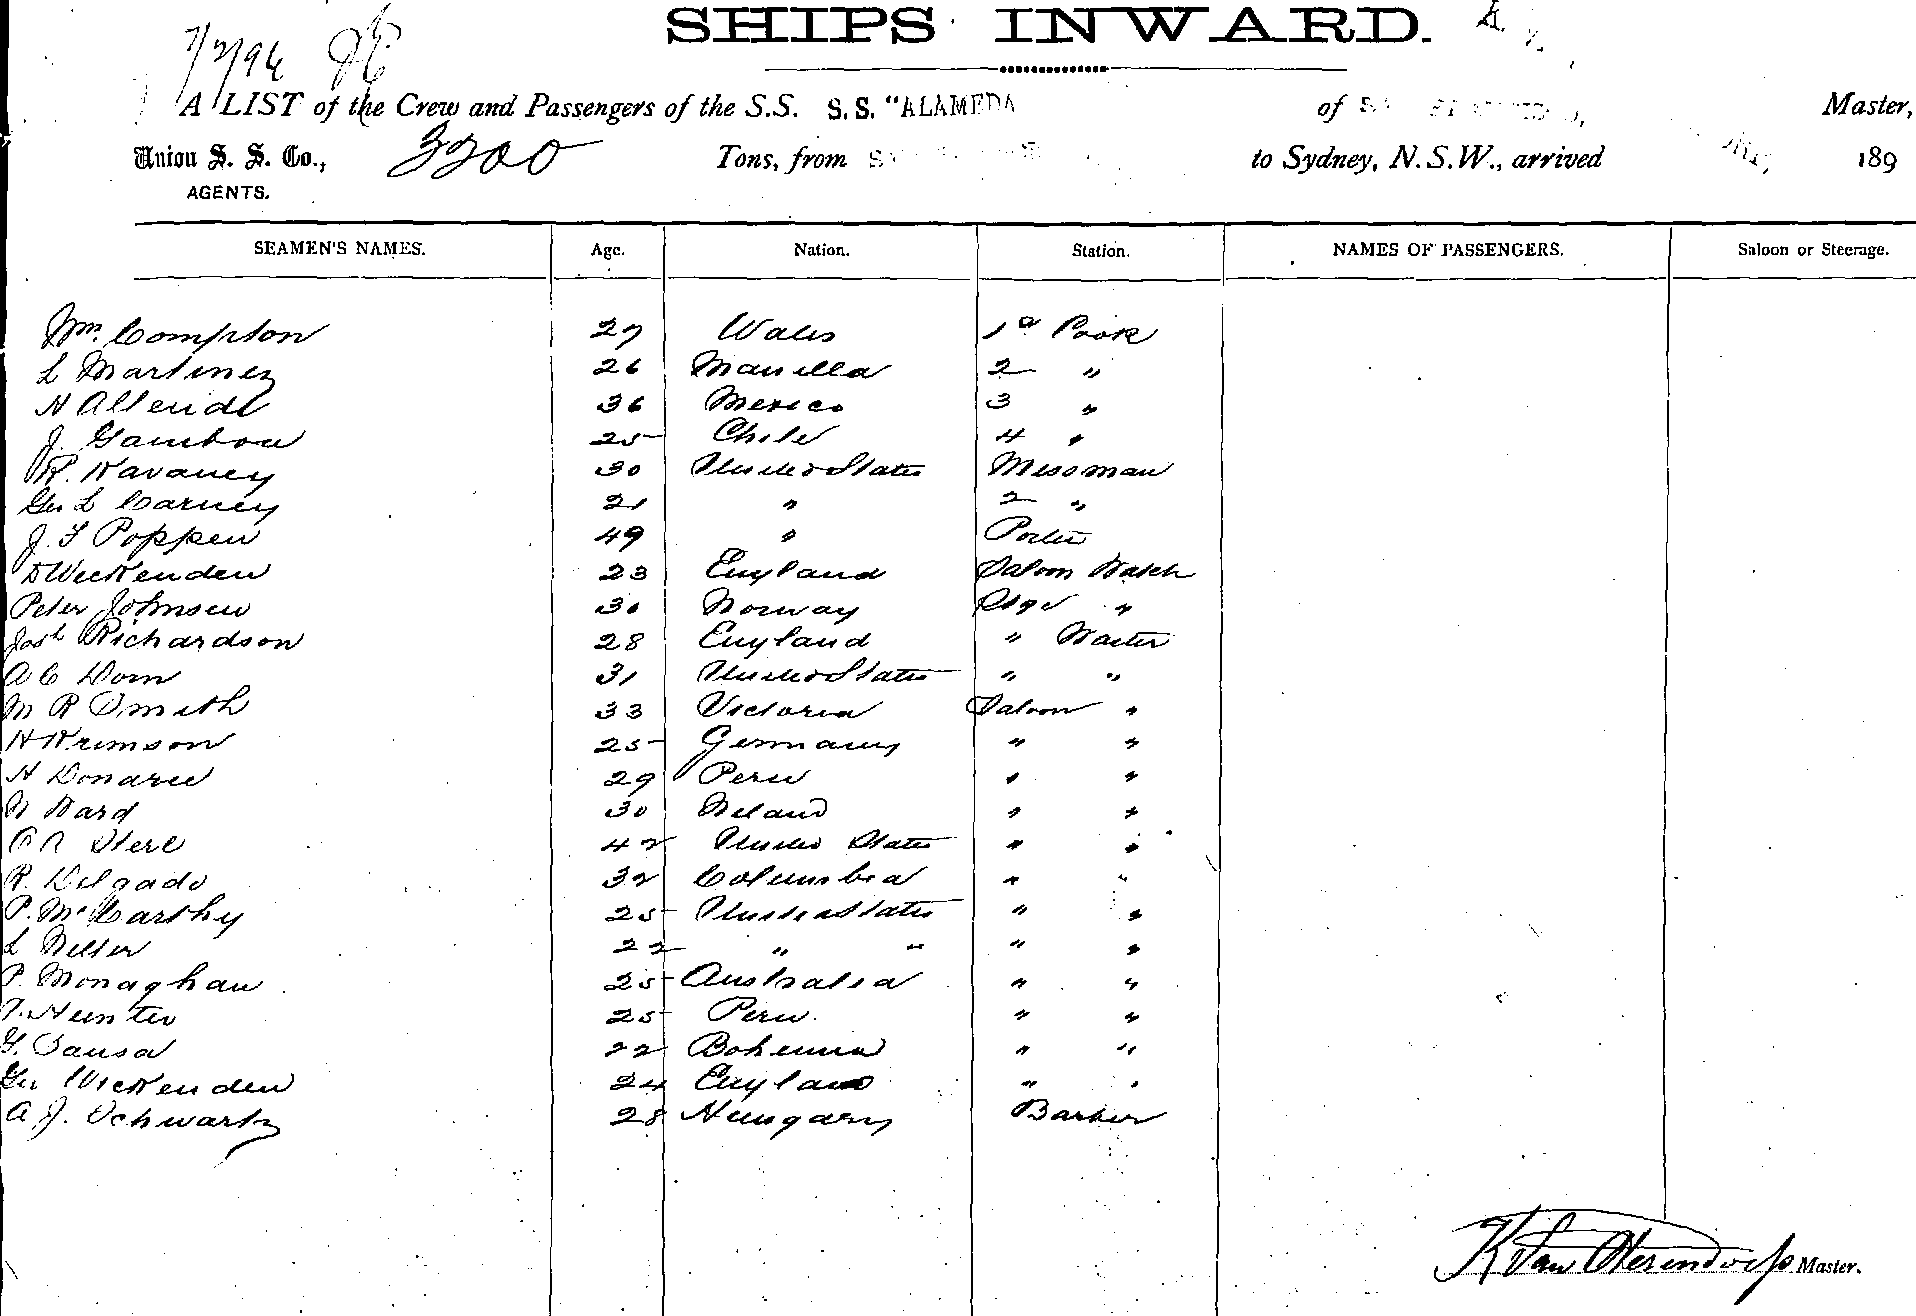 SHIPS INWARD.
7/2/96
A LIST of the Crew and Passengers of the S.S. S.S. "ALAMEDA of Master,
Union S. S. Co., 3200 Tons, from to Sydney, N.S.W., arrived 189
AGENTS.
SEAMEN'S NAMES. Age. Nation. Station. NAMES OF PASSENGERS. Saloon or Steerage.
Wm. Compton 27 Wales 1st Cook
L Martinez 26 Manilla 2 "
H Allende 36 Mexico 3 "
J. Gambou 25 Chile 4 "
R. Kavaney 30 United States Messman
Geo L Carney 21 " 2 "
J. F Poppen 49 " Porter
D Wickenden 23 England Saloon Watch
Peter Johnsen 30 Norway Stge "
Josh Richardson 28 England " Waiter
A C Dorn 31 United States " "
M R Smith 33 Victoria Saloon "
H Krimson 25 Germany " "
H Donarie 29 Peru " "
Ward 30 Ireland " "
42 United States " "
R. Delgado 32 Columbia " "
P. McCarthy 25 United States " "
L 22 " " " "
P. Monaghan 25 Australia " "
Hunter 25 Peru. " "
G. Sausa 22 Bohemia " "
Geo Wickenden 24 England " "
A. J. Schwartz 28 Hungary Barber
Master.